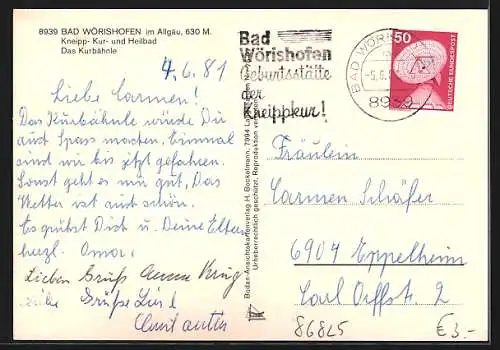 8939 BAD WÖRISHOFEN im Allgäu, 630 M.
Kneipp- Kur- und Heilbad
Das Kurbähnle
4.6.81
Liebe Carmen!
Das Kurbähnle würde Dir
auch Spass machen. Einmal
sind wir bis jetzt gefahren.
Sonst geht es mir gut, Das
Wetter ist auch schön.
Es grüßt Dich u. Deine Eltern
herzl. Oma.
Lieben Gruß
Grüße
Bodan-Ansichtskartenverlag H. Bockelmann, 7994
Urheberrechtlich geschützt. Reproduktion verboten
Bad
Wörishofen
Geburtsstätte
der
Kneippkur!
BAD WÖRIS
-5.6.8
8939
50
DEUTSCHE BUNDESPOST
Fräulein
Carmen Schäfer
6904 Eppelheim
Carl Orffstr. 2
86825
€ 3.-